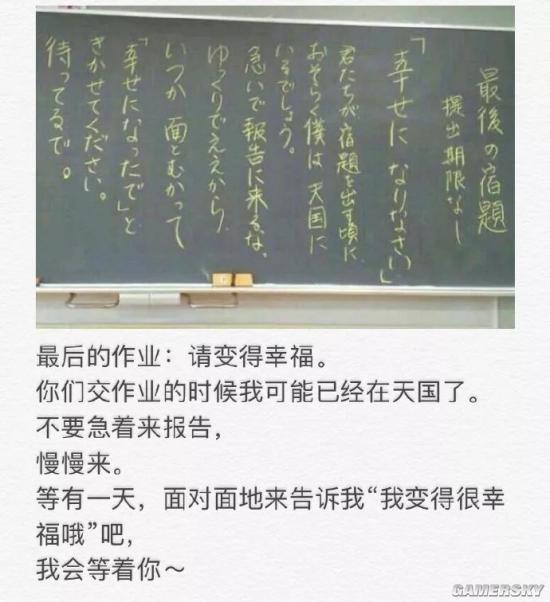 最後の宿題
提出期限なし
「幸せに なりなさい」
君たちが宿題を出す頃に、
おそらく僕は天国に
いるでしょう。
急いで報告に来るな。
ゆっくりでええから、
いつか 面とむかって
「幸せになったで」と
きかせてください。
待ってるで。
最后的作业：请变得幸福。
你们交作业的时候我可能已经在天国了。
不要急着来报告，
慢慢来。
等有一天，面对面地来告诉我“我变得很幸
福哦”吧，
我会等着你～
GAMERSKY